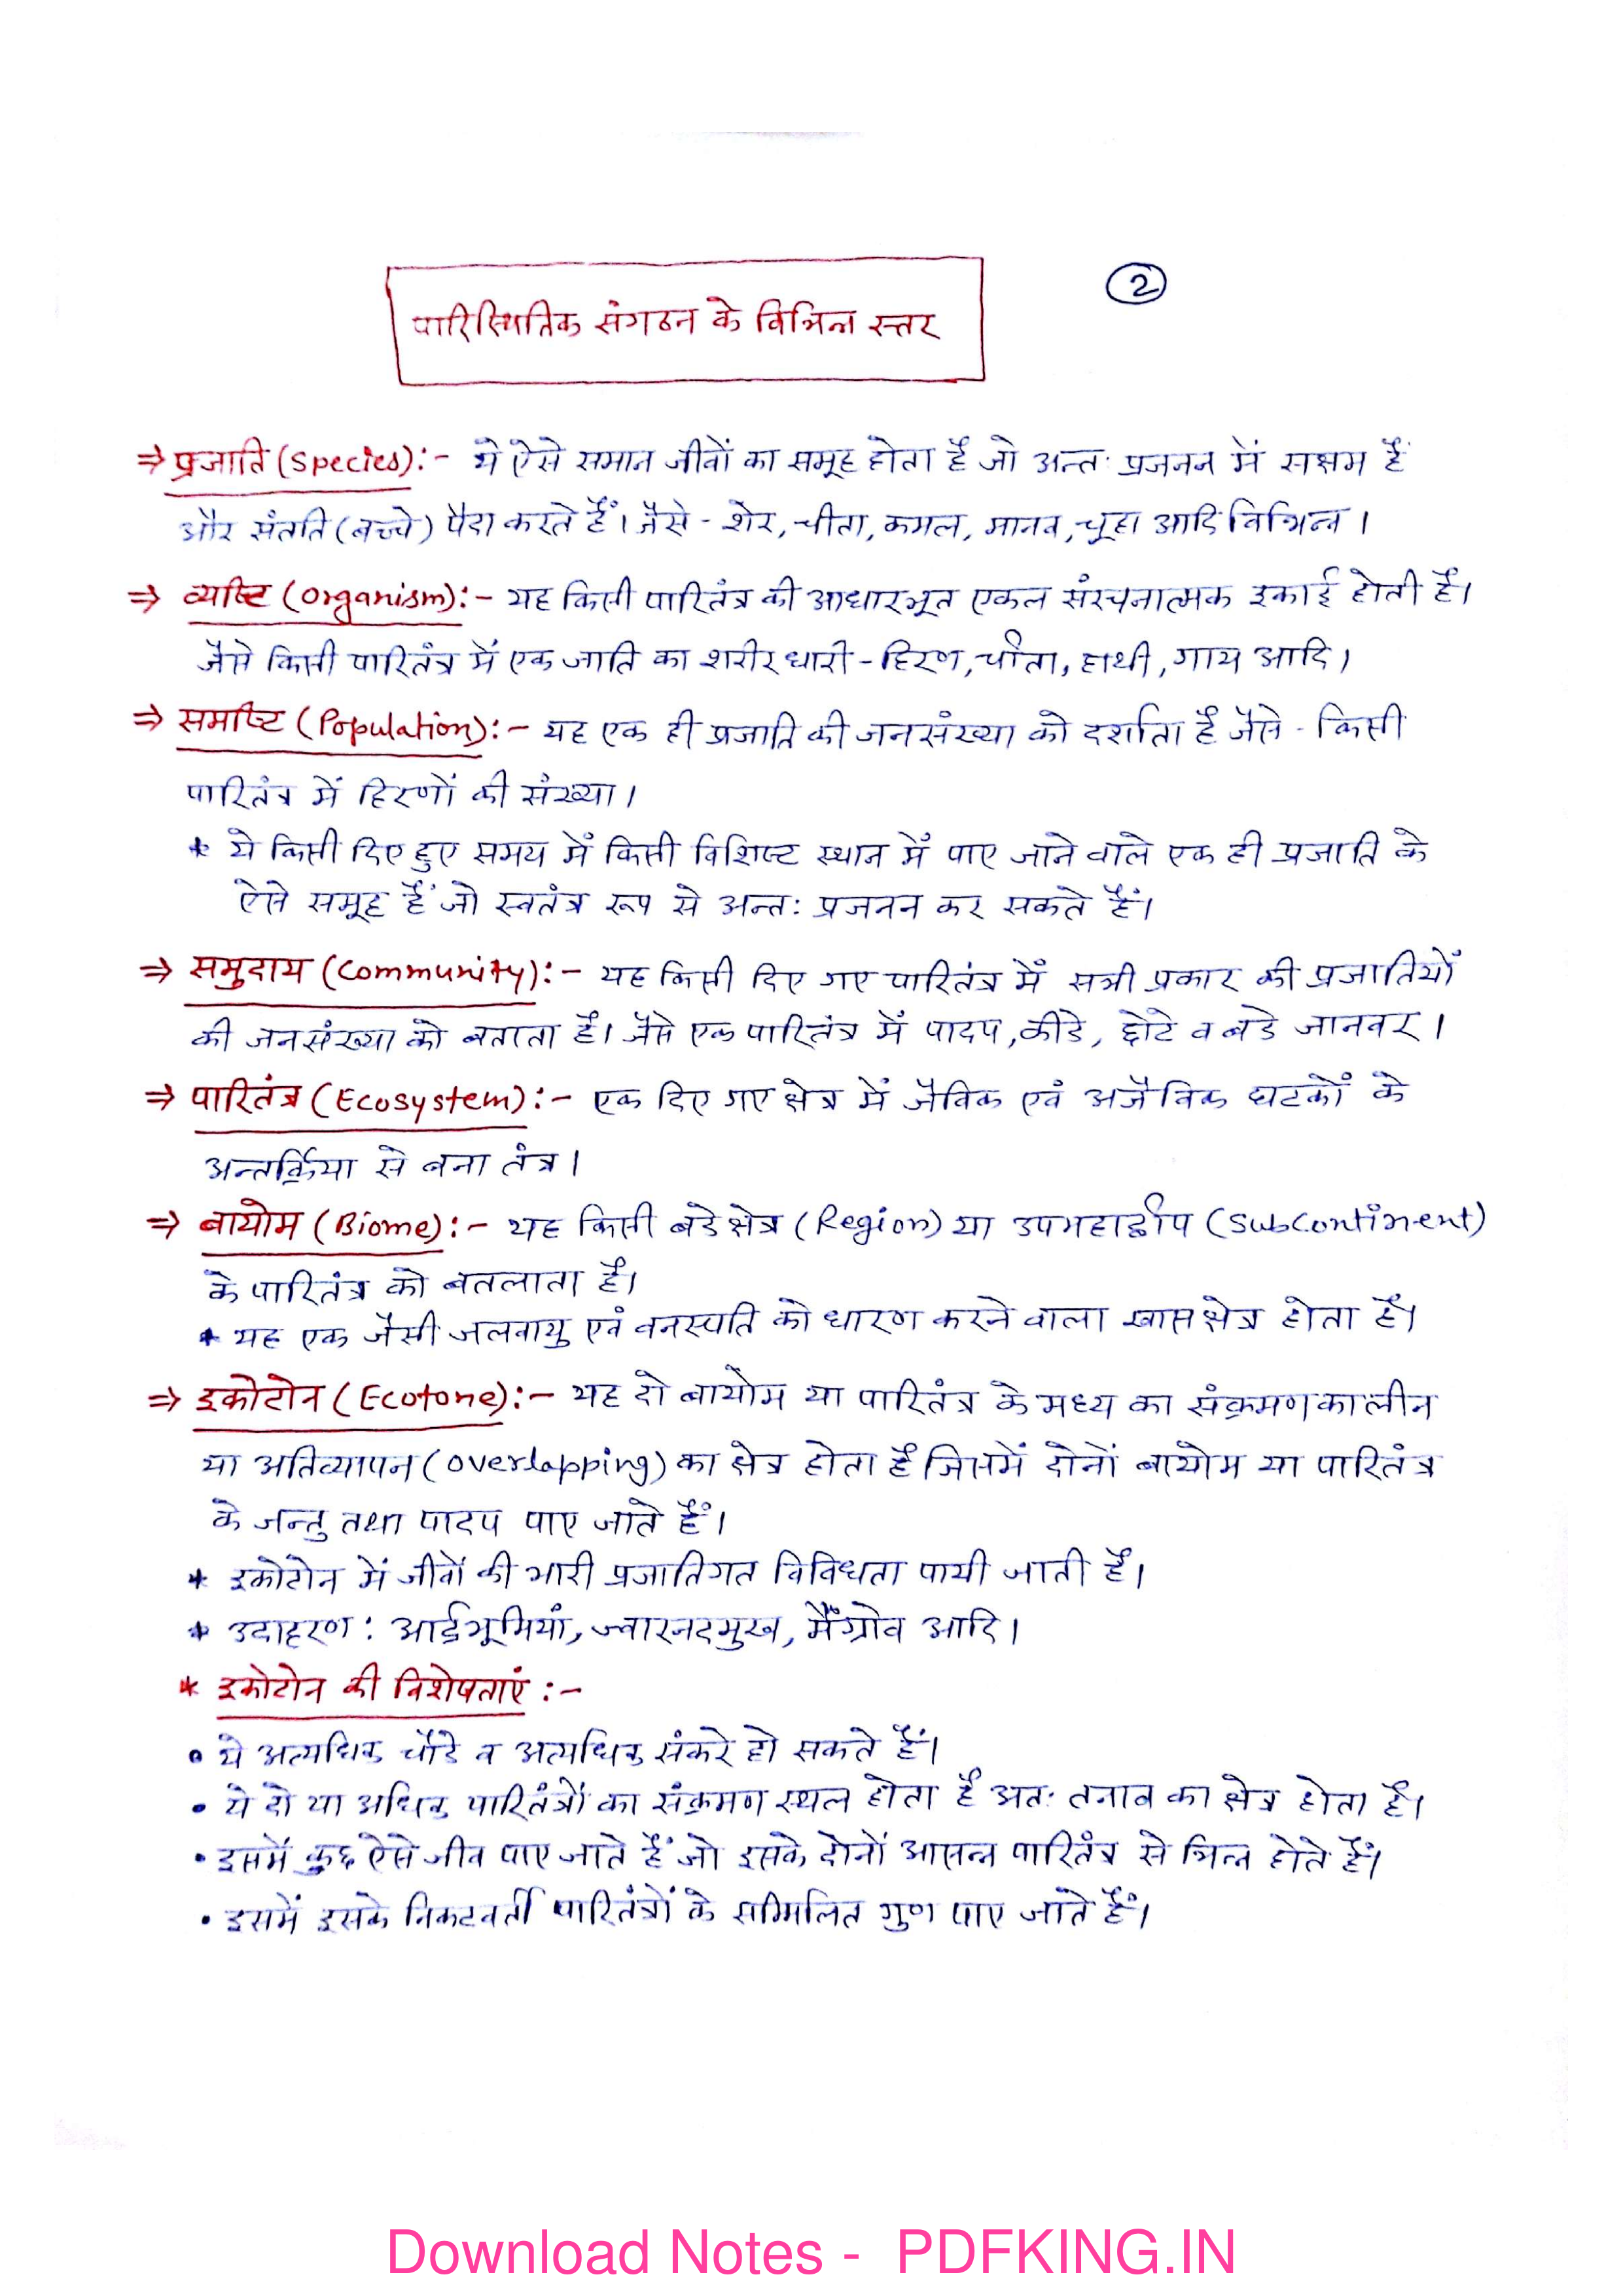 2
पारिस्थितिक संगठन के विभिन्न स्तर
⇒ प्रजाति (Species):- ये ऐसे समान जीवों का समूह होता है जो अन्तः प्रजनन में सक्षम है
और संतति (बच्चे) पैदा करते हैं। जैसे - शेर, चीता, कमल, मानव, चूहा आदि विभिन्न।
⇒ व्यष्टि (Organism):- यह किसी पारितंत्र की आधारभूत एकल संरचनात्मक इकाई होती है।
जैसे किसी पारितंत्र में एक जाति का शरीर धारी - हिरण, चीता, हाथी, गाय आदि।
⇒ समष्टि (Population):- यह एक ही प्रजाति की जनसंख्या को दर्शाता है जैसे - किसी
पारितंत्र में हिरणों की संख्या।
* ये किसी दिए हुए समय में किसी विशिष्ट स्थान में पाए जाने वाले एक ही प्रजाति के
ऐसे समूह हैं जो स्वतंत्र रूप से अन्तः प्रजनन कर सकते हैं।
⇒ समुदाय (Community):- यह किसी दिए गए पारितंत्र में सभी प्रकार की प्रजातियों
की जनसंख्या को बताता है। जैसे एक पारितंत्र में पादप, कीडे, छोटे व बडे जानवर।
⇒ पारितंत्र (Ecosystem):- एक दिए गए क्षेत्र में जैविक एवं अजैविक घटकों के
अन्तर्क्रिया से बना तंत्र।
⇒ बायोम (Biome):- यह किसी बडे क्षेत्र (Region) या उपमहाद्वीप (Subcontinent)
के पारितंत्र को बतलाता है।
* यह एक जैसी जलवायु एवं वनस्पति को धारण करने वाला खास क्षेत्र होता है।
⇒ इकोटोन (Ecotone):- यह दो बायोम या पारितंत्र के मध्य का संक्रमणकालीन
या अतिव्यापन (overlapping) का क्षेत्र होता है जिसमें दोनों बायोम या पारितंत्र
के जन्तु तथा पादप पाए जाते हैं।
* इकोटोन में जीवों की भारी प्रजातिगत विविधता पायी जाती है।
* उदाहरण: आर्द्रभूमियां, ज्वारनदमुख, मैंग्रोव आदि।
* इकोटोन की विशेषताएं :-
• ये अत्यधिक चौडे व अत्यधिक संकरे हो सकते हैं।
• ये दो या अधिक पारितंत्रों का संक्रमण स्थल होता है अतः तनाव का क्षेत्र होता है।
• इसमें कुछ ऐसे जीव पाए जाते हैं जो इसके दोनों आसन्न पारितंत्र से भिन्न होते हैं।
• इसमें इसके निकटवर्ती पारितंत्रों के सम्मिलित गुण पाए जाते हैं।
Download Notes - PDFKING.IN